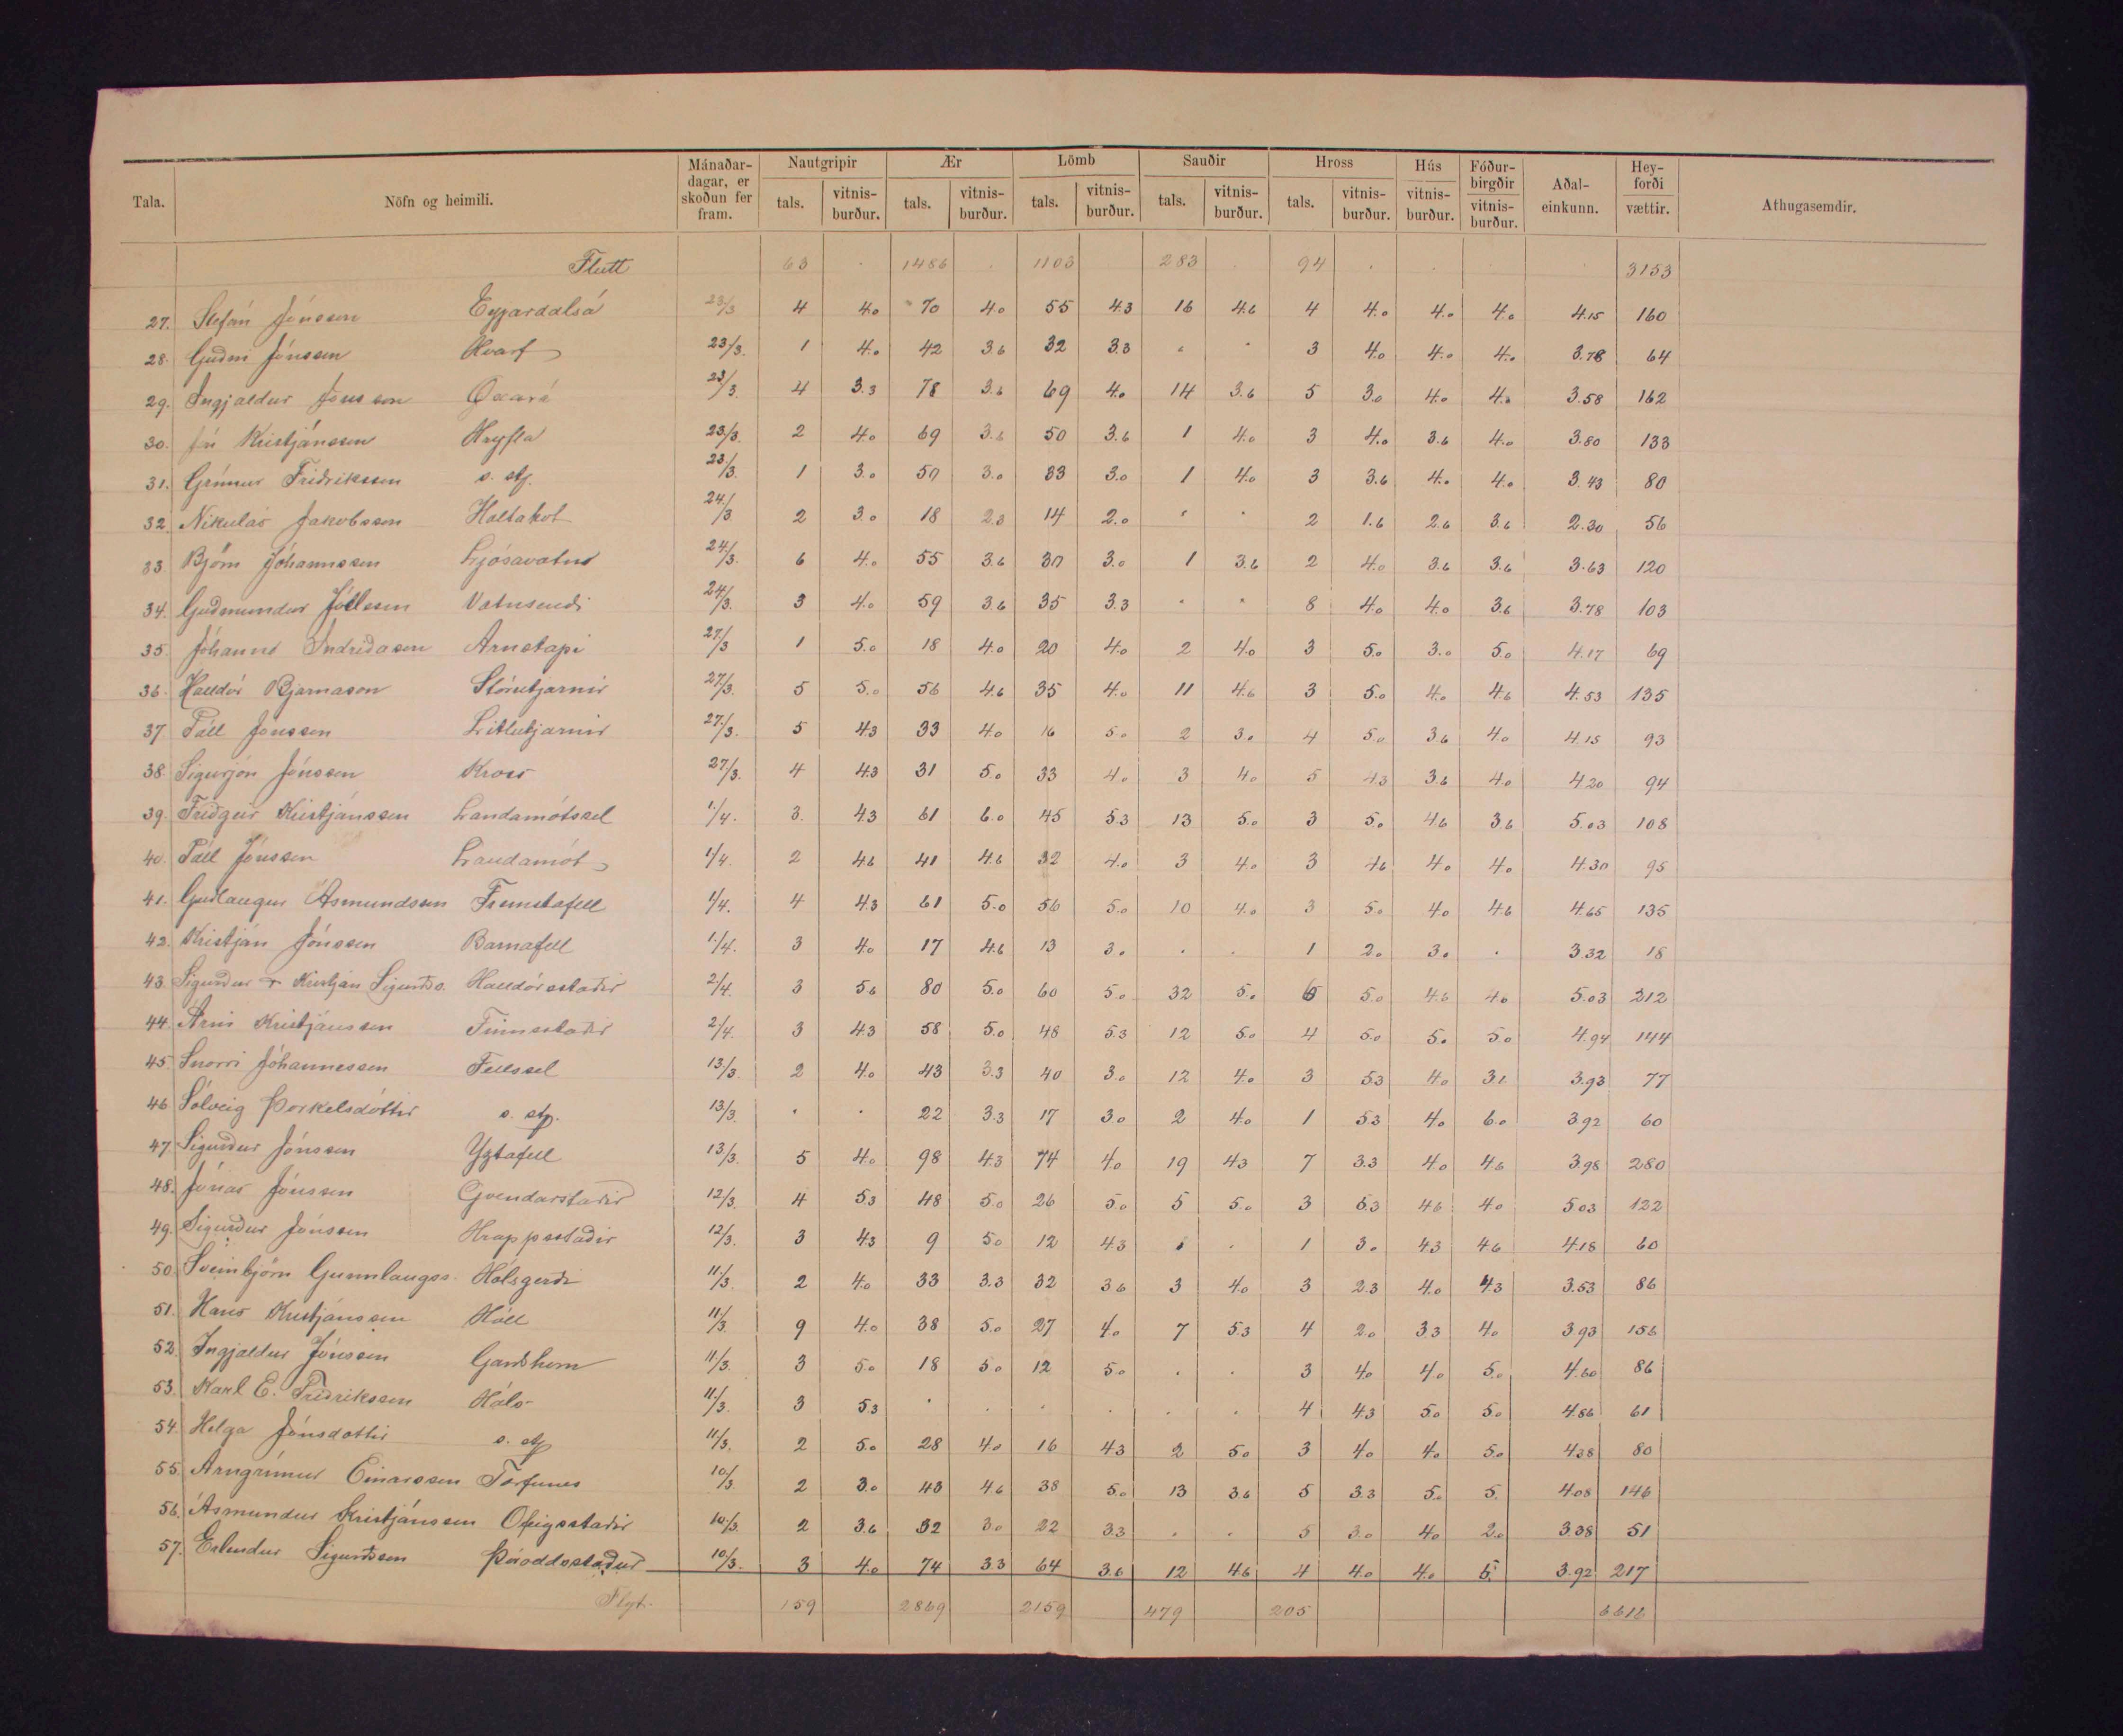 Tala. Nöfn og heimili. Mánaðardagar, er skoðun fer fram. Nautgripir Ær Lömb Sauðir Hross Hús Fóðurbirgðir Aðaleinkunn. Heyforði vættir. Athugasemdir.
tals. vitnisburður. tals. vitnisburður. tals. vitnisburður. tals. vitnisburður. tals. vitnisburður. vitnisburður. vitnisburður.
Flutt 63 . 1486 . 1103 283 . 94 . . . 3153
27. Stefán Jónsson Eyjardalsá 23/3 4 4.0 70 4.0 55 4.3 16 4.6 4 4.0 4.0 4.0 4.15 160
28. Guðni Jónsson Hvarf 23/3. 1 4.0 42 3.6 32 3.3 " " 3 4.0 4.0 4.0 3.78 64
29. Ingjaldur Jónsson Öxará 23/3. 4 3.3 78 3.6 69 4.0 14 3.6 5 3.0 4.0 4.0 3.58 162
30. Jón Kristjánsson Hryfla 23/3. 2 4.0 69 3.6 50 3.6 1 4.0 3 4.0 3.6 4.0 3.80 133
31. Grímur Friðriksson s. stj. 23/3. 1 3.0 50 3.0 33 3.0 1 4.0 3 3.6 4.0 4.0 3.43 80
32. Nikulás Jakobsson Holtakot 24/3 2 3.0 18 2.3 14 2.0 " " 2 1.6 2.6 3.6 2.30 56
33. Björn Jóhannsson Ljósavatni 24/3. 6 4.0 55 3.6 30 3.0 1 3.6 2 4.0 3.6 3.6 3.63 120
34. Guðmundur Jóelsson Vatnsendi 24/3. 3 4.0 59 3.6 35 3.3 " " 8 4.0 4.0 3.6 3.78 103
35. Jóhannes Indriðason Arnstapi 27/3 1 5.0 18 4.0 20 4.0 2 4.0 3 5.0 3.0 5.0 4.17 69
36. Halldór Bjarnason Stórutjarnir 27/3. 5 5.0 56 4.6 35 4.0 11 4.6 3 5.0 4.0 4.6 4.53 135
37 Páll Jónsson Litlutjarnir 27/3. 5 4.3 33 4.0 16 5.0 2 3.0 4 5.0 3.6 4.0 4.15 93
38. Sigurjón Jónsson Kross 27/3. 4 4.3 31 5.0 33 4.0 3 4.0 5 4.3 3.6 4.0 4.20 94
39. Friðgeir Kristjánsson Landamótssel 1/4. 3. 4.3 61 6.0 45 5.3 13 5.0 3 5.0 4.6 3.6 5.03 108
40. Páll Jónsson Landamót 1/4. 2 4.6 41 4.6 32 4.0 3 4.0 3 4.6 4.0 4.0 4.30 95
41. Guðlaugur Ásmundsson Fremstafell 1/4. 4 4.3 61 5.0 56 5.0 10 4.0 3 5.0 4.0 4.6 4.65 135
42. Kristján Jónsson Barnafell 1/4. 3 4.0 17 4.6 13 3.0 . . 1 2.0 3.0 . 3.32 18
43. Sigurður & Kristján Sigurðs. Halldórsstaðir 2/4. 3 5.6 80 5.0 60 5.0 32 5.0 6 5.0 4.6 4.6 5.03 212
44. Árni Kristjánsson Finnsstaðir 2/4. 3 4.3 58 5.0 48 5.3 12 5.0 4 5.0 5.0 5.0 4.94 144
45. Snorri Jóhannesson Fellssel 13/3. 2 4.0 43 3.3 40 3.0 12 4.0 3 5.3 4.0 3.6 3.93 77
46 Sólveig Þorkelsdóttir s. stj. 13/3. . . 22 3.3 17 3.0 2 4.0 1 5.3 4.0 6.0 3.92 60
47. Sigurður Jónsson Yztafell 13/3. 5 4.0 98 4.3 74 4.0 19 4.3 7 3.3 4.0 4.6 3.98 280
48. Jónas Jónsson Gvendarstaðir 12/3. 4 5.3 48 5.0 26 5.0 5 5.0 3 5.3 4.6 4.0 5.03 122
49. Sigurður Jónsson Hrappsstaðir 12/3. 3 4.3 9 5.0 12 4.3 . . 1 3.0 4.3 4.6 4.18 60
50. Sveinbjörn Gunnlaugss. Hólsgerði 11/3. 2 4.0 33 3.3 32 3.6 3 4.0 3 2.3 4.0 4.3 3.53 86
51. Hans Kristjánsson Hóll 11/3. 9 4.0 38 5.0 27 4.0 7 5.3 4 2.0 3.3 4.0 3.93 156
52. Ingjaldur Jónsson Garðshorn 11/3. 3 5.0 18 5.0 12 5.0 . . 3 4.0 4.0 5.0 4.60 86
53. Karl E. Friðriksson Háls 11/3. 3 5.3 . . . . . . 4 4.3 5.0 5.0 4.86 61
54. Helga Jónsdottir s. stj 11/3. 2 5.0 28 4.0 16 4.3 2 5.0 3 4.0 4.0 5.0 4.38 80
55. Arngrímur Einarsson Torfunes 10/3. 2 3.0 43 4.6 38 5.0 13 3.6 5 3.3 5.0 5. 4.08 146
56. Ásmundur Kristjánsson Ófeigsstaðir 10/3. 2 3.6 32 3.0 22 3.3 . . 5 3.0 4.0 2.0 3.38 51
57. Erlendur Sigurðsson Þóroddsstaður 10/3. 3 4.0 74 3.3 64 3.6 12 4.6 4 4.0 4.0 5. 3.92 217
Flyt. 159 2869 2159 479 205 6616